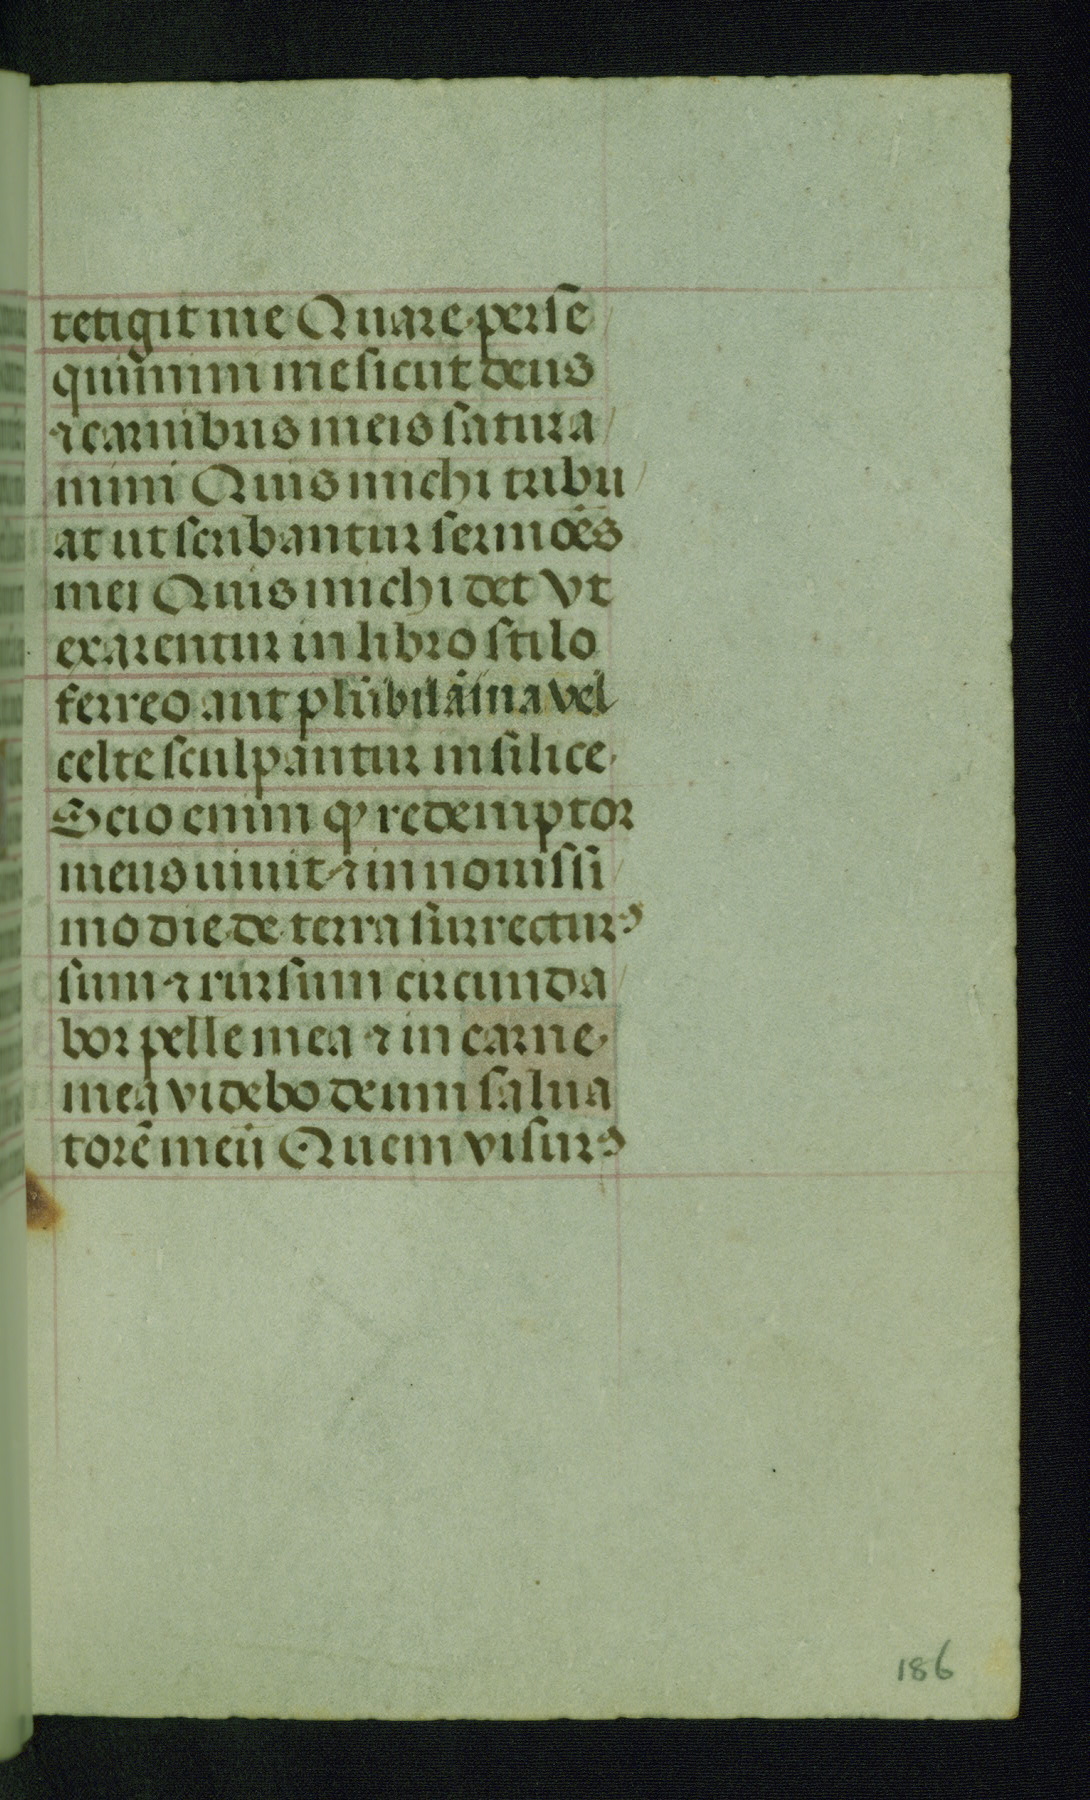 tetigit me Quare perse
quimini me sicut deus
⁊ carnibus meis satura
mini Quis michi tribu
at ut scribantur sermōēs
mei Quis michi det vt
exarentur in libro stilo
ferreo aut plūbi lāina vel
celte sculpantur in silice.
Scio enim ꝙ redemptor
meus uiuit ⁊ in nouissi
mo die de terra surrecturꝰ
sum ⁊ rursum circunda
bor pelle mea ⁊ in carne
mea videbo deum salua
torē meū Quem visurꝰ
186